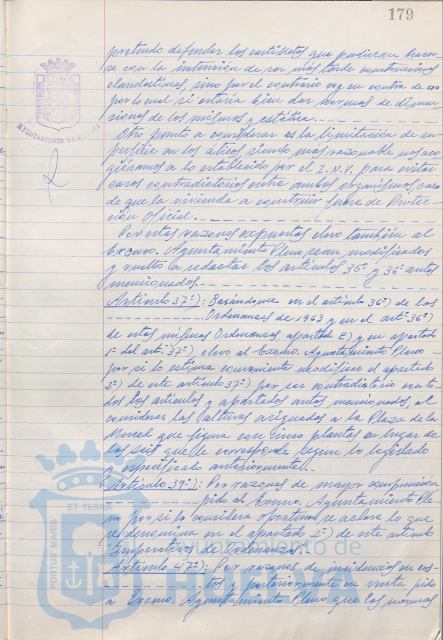 179
pretendo defender los castilletes que pudieran hacer-
se con la intención de ser más tarde construcciones
clandestinas, sino por el contrario voy en contra de eso
por lo cual si estaría bien dar normas de dimen-
siones de los mismos y estética.
Otro punto a considerar es la limitación de su-
perficie en los áticos siendo más razonable nos aco-
giéramos a lo establecido por el I.N.V. para evitar
casos contradictorios entre ambos organismos caso
de que la vivienda a construir fuese de Protec-
ción Oficial.
Por estas razones expuestas elevo también al
Excmo. Ayuntamiento Pleno sean modificados
y vuelto a redactar los artículos 35º y 36º antes
mencionados.
Artículo 37º): Basándome en el artículo 36º) de las
Ordenanzas de 1963 y en el artº 36º)
de estas mismas Ordenanzas apartado E) y en apartado
1º del art. 37º) elevo al Excmo. Ayuntamiento Pleno
por si lo estima conveniente modifique el apartado
2º) de este artículo 37º) por ser contradictorio en to-
dos los artículos y apartados antes mencionados al
considerar las alturas asignadas a la Plaza de la
Merced que figura con cinco plantas en lugar de
las seis que le corresponde según lo legislado
y especificado anteriormente.
Artículo 39º): Por razones de mayor comprensión
pido al Excmo. Ayuntamiento Ple
no por si lo considera oportuno se aclare lo que
se denomina en el apartado 2º) de este artículo
"Imperativos de Ordenanzas".
Artículo 47º): Por razones de incidencias en cos-
tes y posteriormente en venta pido
a Excmo. Ayuntamiento Pleno que las normas
AYUNTAMIENTO DE
PORTUS MARIS ET TERRAE
Ayuntamiento de
HUELVA